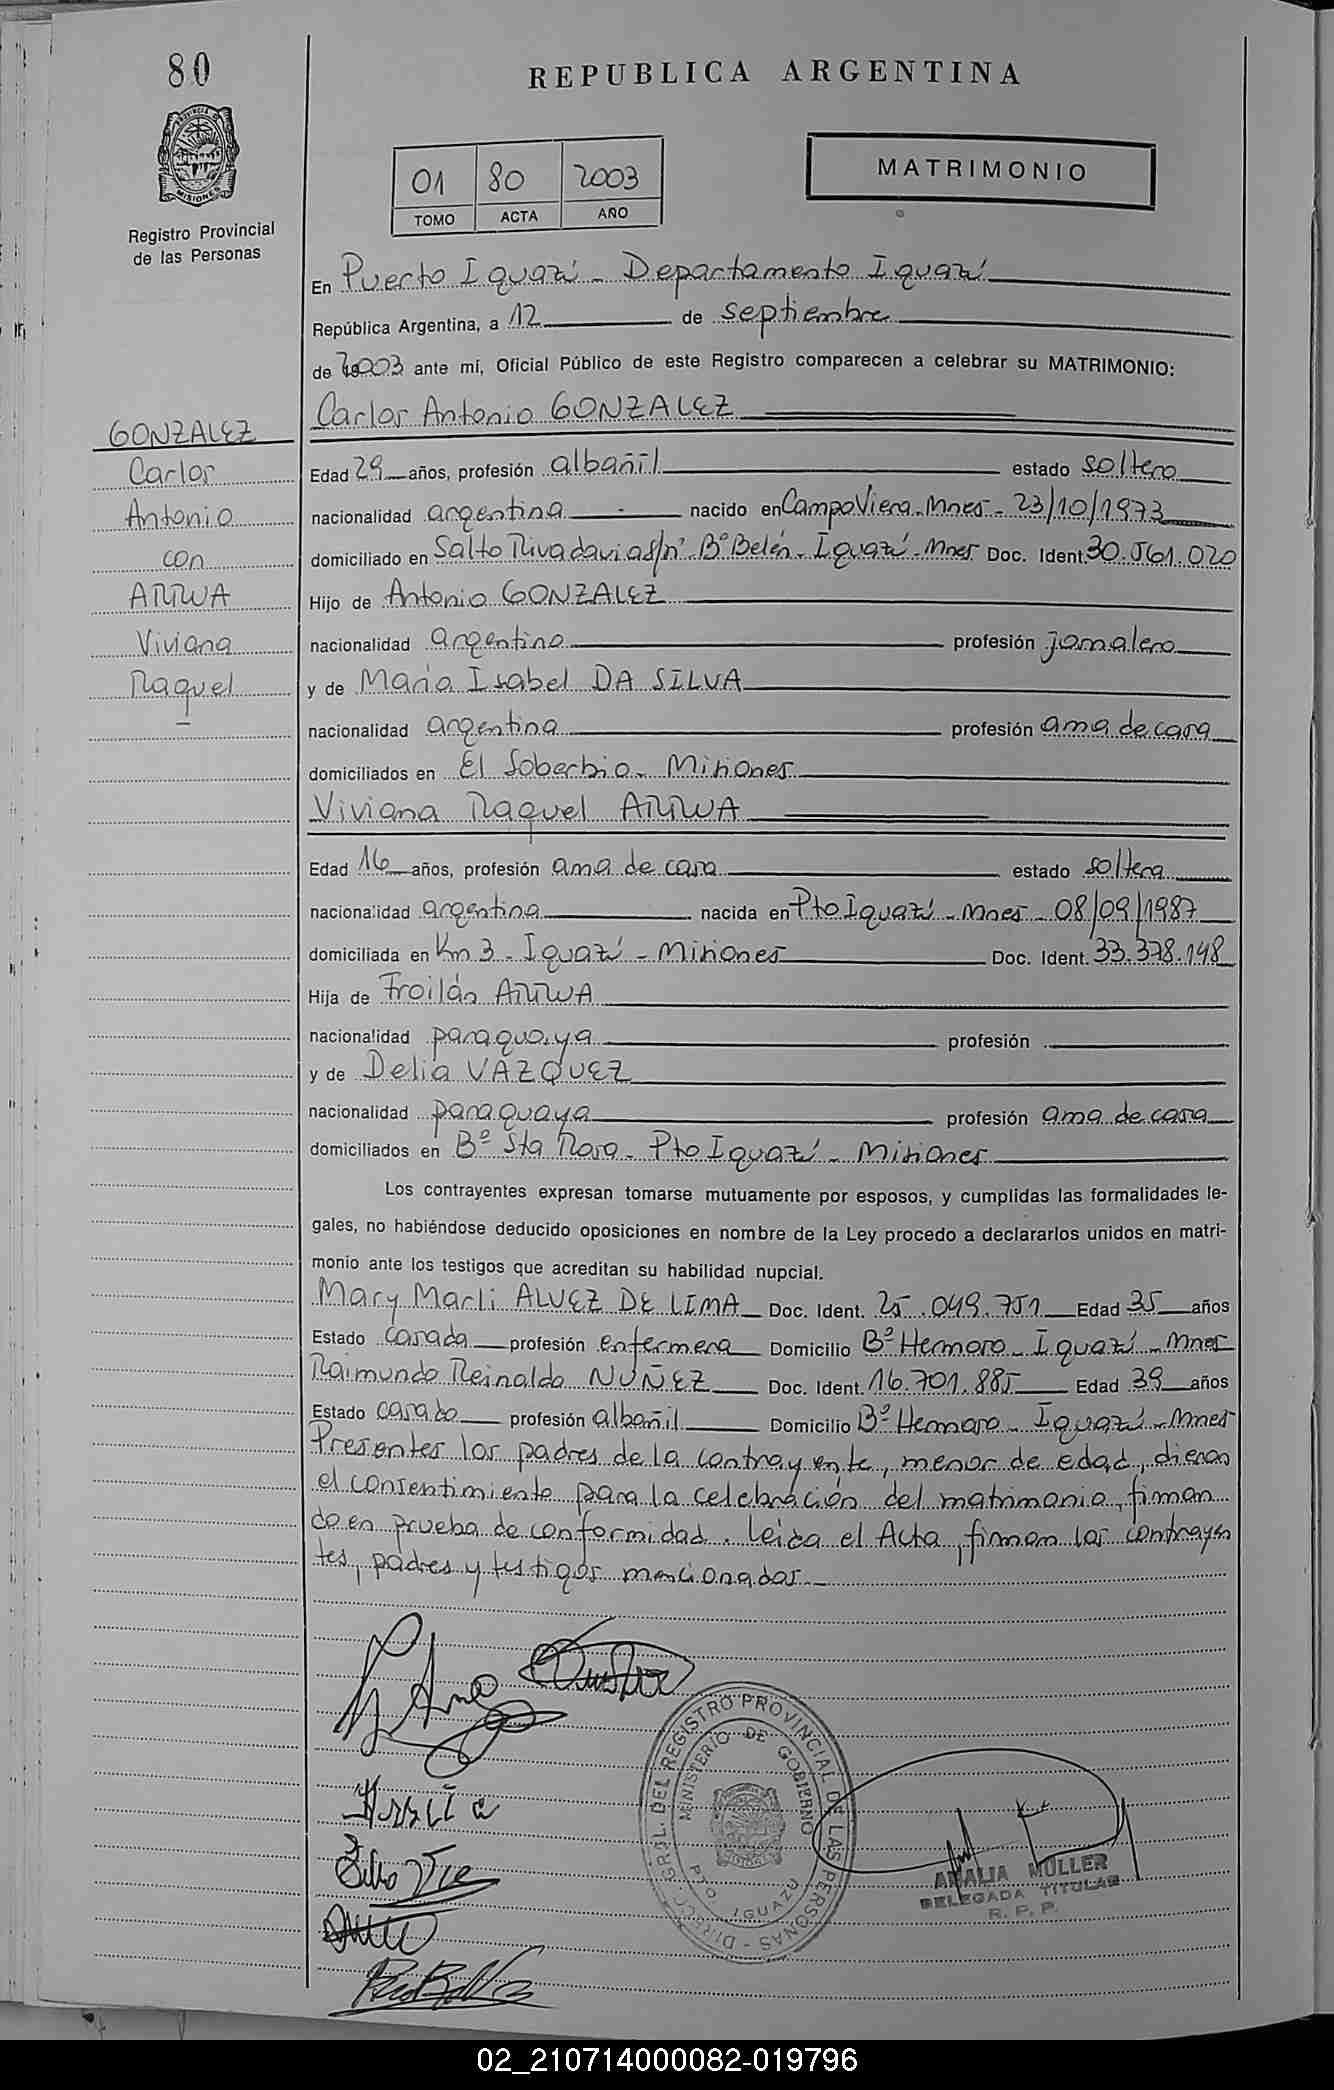 80
REPUBLICA ARGENTINA
PROVINCIA DE
MISIONES
Registro Provincial
de las Personas
01 80 2003
TOMO ACTA AÑO
MATRIMONIO
En Puerto Iguazú - Departamento Iguazú
República Argentina, a 12 de septiembre
de 2003 ante mí, Oficial Público de este Registro comparecen a celebrar su MATRIMONIO:
GONZALEZ
Carlos
Antonio
con
ARRUA
Viviana
Raquel
Carlos Antonio GONZALEZ
Edad 29 años, profesión albañil estado soltero
nacionalidad argentina nacido en Campo Viera - Mnes - 23/10/1973
domiciliado en Salto Rivadavia s/nº Bº Belén - Iguazú - Mnes Doc. Ident. 30.561.020
Hijo de Antonio GONZALEZ
nacionalidad argentina profesión jornalero
y de María Isabel DA SILVA
nacionalidad argentina profesión ama de casa
domiciliados en El Soberbio - Misiones
Viviana Raquel ARRUA
Edad 16 años, profesión ama de casa estado soltera
nacionalidad argentina nacida en Pto Iguazú - Mnes - 08/09/1987
domiciliada en Km 3 - Iguazú - Misiones Doc. Ident. 33.378.148
Hija de Froilán ARRUA
nacionalidad paraguaya profesión
y de Delia VAZQUEZ
nacionalidad paraguaya profesión ama de casa
domiciliados en Bº Sta Rosa - Pto Iguazú - Misiones
Los contrayentes expresan tomarse mutuamente por esposos, y cumplidas las formalidades le-
gales, no habiéndose deducido oposiciones en nombre de la Ley procedo a declararlos unidos en matri-
monio ante los testigos que acreditan su habilidad nupcial.
Mary Marli ALVEZ DE LIMA Doc. Ident. 25.049.751 Edad 35 años
Estado casada profesión enfermera Domicilio Bº Hermoso - Iguazú - Mnes
Raimundo Reinaldo NUÑEZ Doc. Ident. 16.701.885 Edad 39 años
Estado casado profesión albañil Domicilio Bº Hermoso - Iguazú - Mnes
Presentes los padres de la contrayente, menor de edad, dieron
el consentimiento para la celebración del matrimonio, firman
do en prueba de conformidad. Leida el Acta, firman los contrayen
tes, padres y testigos mencionados.
DIRECC. GRAL. DEL REGISTRO PROVINCIAL DE LAS PERSONAS
MINISTERIO DE GOBIERNO
PTO IGUAZU
AMALIA MÜLLER
DELEGADA TITULAR
R. P. P.
02_210714000082-019796